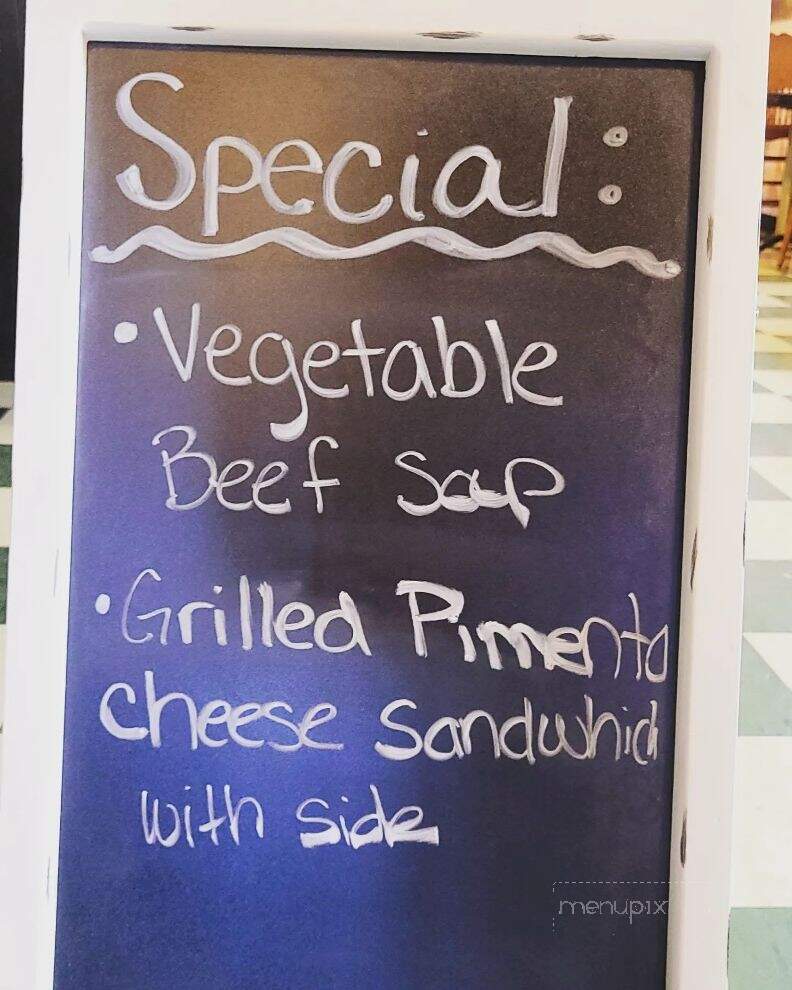 Special:
• Vegetable
Beef Soup
• Grilled Pimento
cheese Sandwhich
with side
menupix